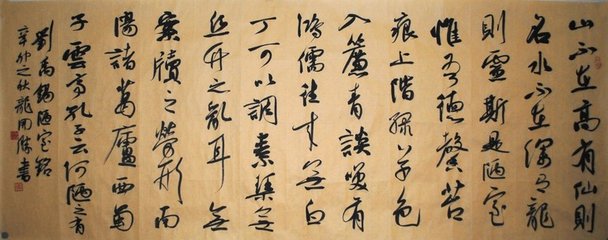 山不在高有仙則
名水不在深有龍
則靈斯是陋室
惟吾德馨苔
痕上階綠草色
入簾青談笑有
鴻儒往來無白
丁可以調素琴無
丝竹之亂耳無
案牘之勞形南
陽諸葛廬西蜀
子雲亭孔子云何陋之有
劉禹錫陋室銘
辛卯之秋龍開勝書